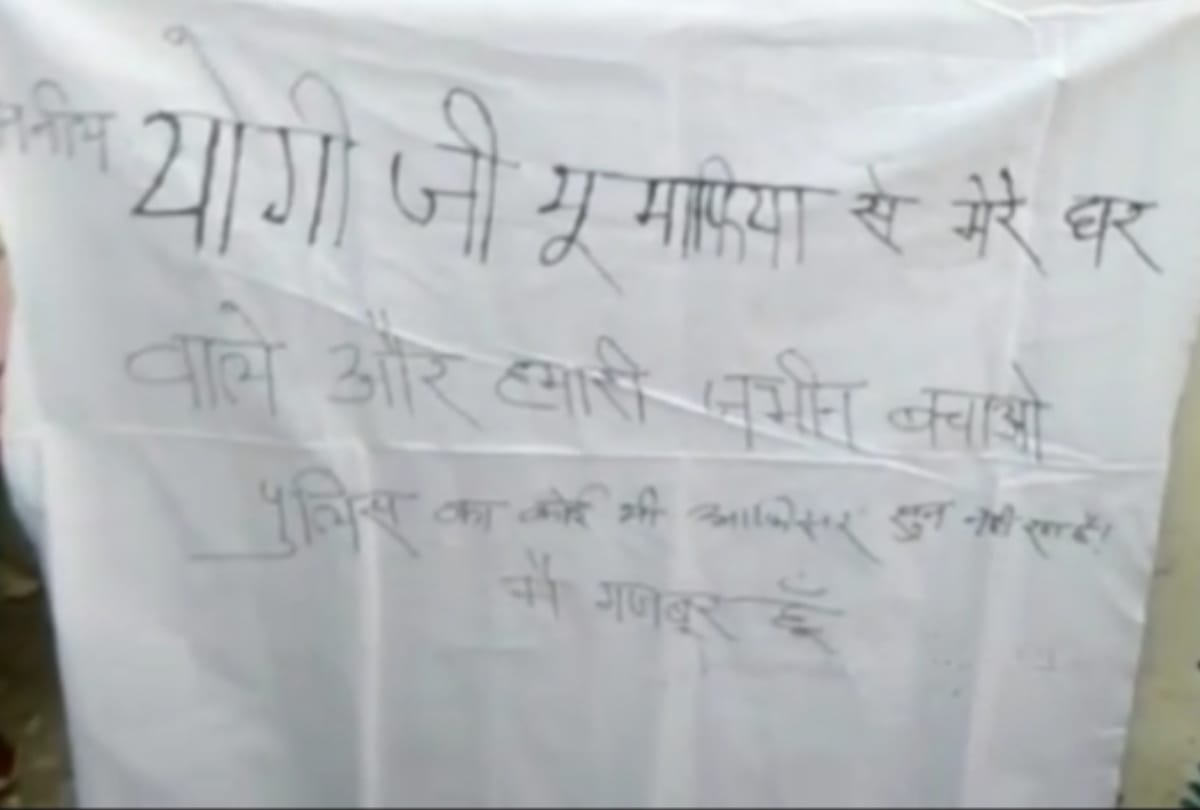 योगी जी भू माफिया से मेरे घर
वाले और हमारी जमीन बचाओ
पुलिस का कोई भी आफिसर सुन नही रहा है।
मै मजबूर हूँ